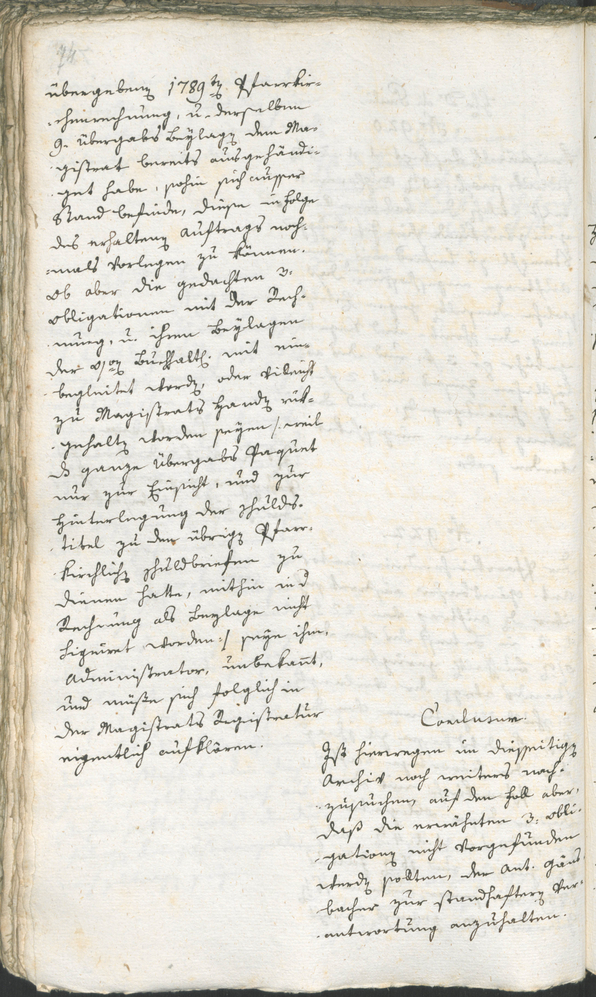 74
übergebenen 1789ten Pfarrkir-
chenrechnung, u. derselben
9. übergabs Beÿlagen dem Ma-
gistrat bereits ausgehändi-
get habe, sohin sich ausser
Stand befinde, diese in folge
des erhaltenen Auftrags noch-
mals vorlegen zu können.
ob aber die gedachten 3.
obligationen mit der Rech-
nung, u. ihren Beÿlagen
der Buchhalt. mit ein-
begleitet worden, oder vieleicht
zu Magistrats Handen ruk-
gehalten worden seÿen /: weil
ds ganze übergabs Paquet
nur zur Einsicht, und zur
Hinterlegung der schulds-
titel zu den übrigen Pfarr-
kirchlichen schuldbriefen zu
dienen hatte, mithin in d
Rechnung als Beylage nicht
figurirt worden :/ seÿe ihm,
Administrator, unbekant,
und müsse sich folglich in
der Magistrats Registratur
eigentlich aufklären.
Conclusum.
Ist hierwegen im diesseitigen
Archiv noch weiters nach-
zusuchen, auf den Fall aber,
daß die erwähnten 3. obli-
gationen nicht vorgefunden
werden sollten, der Ant. Gäns-
bacher zur standhaften Ver-
antwortung anzuhalten.